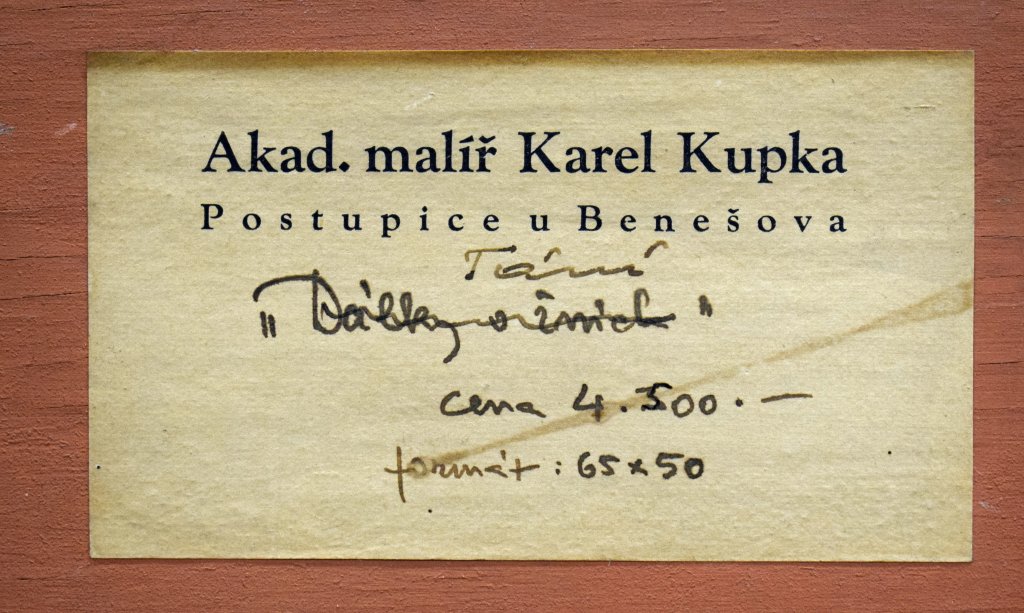 Akad. malíř Karel Kupka
Postupice u Benešova
"Dálky o žních"
cena 4.500.—
formát: 65x50